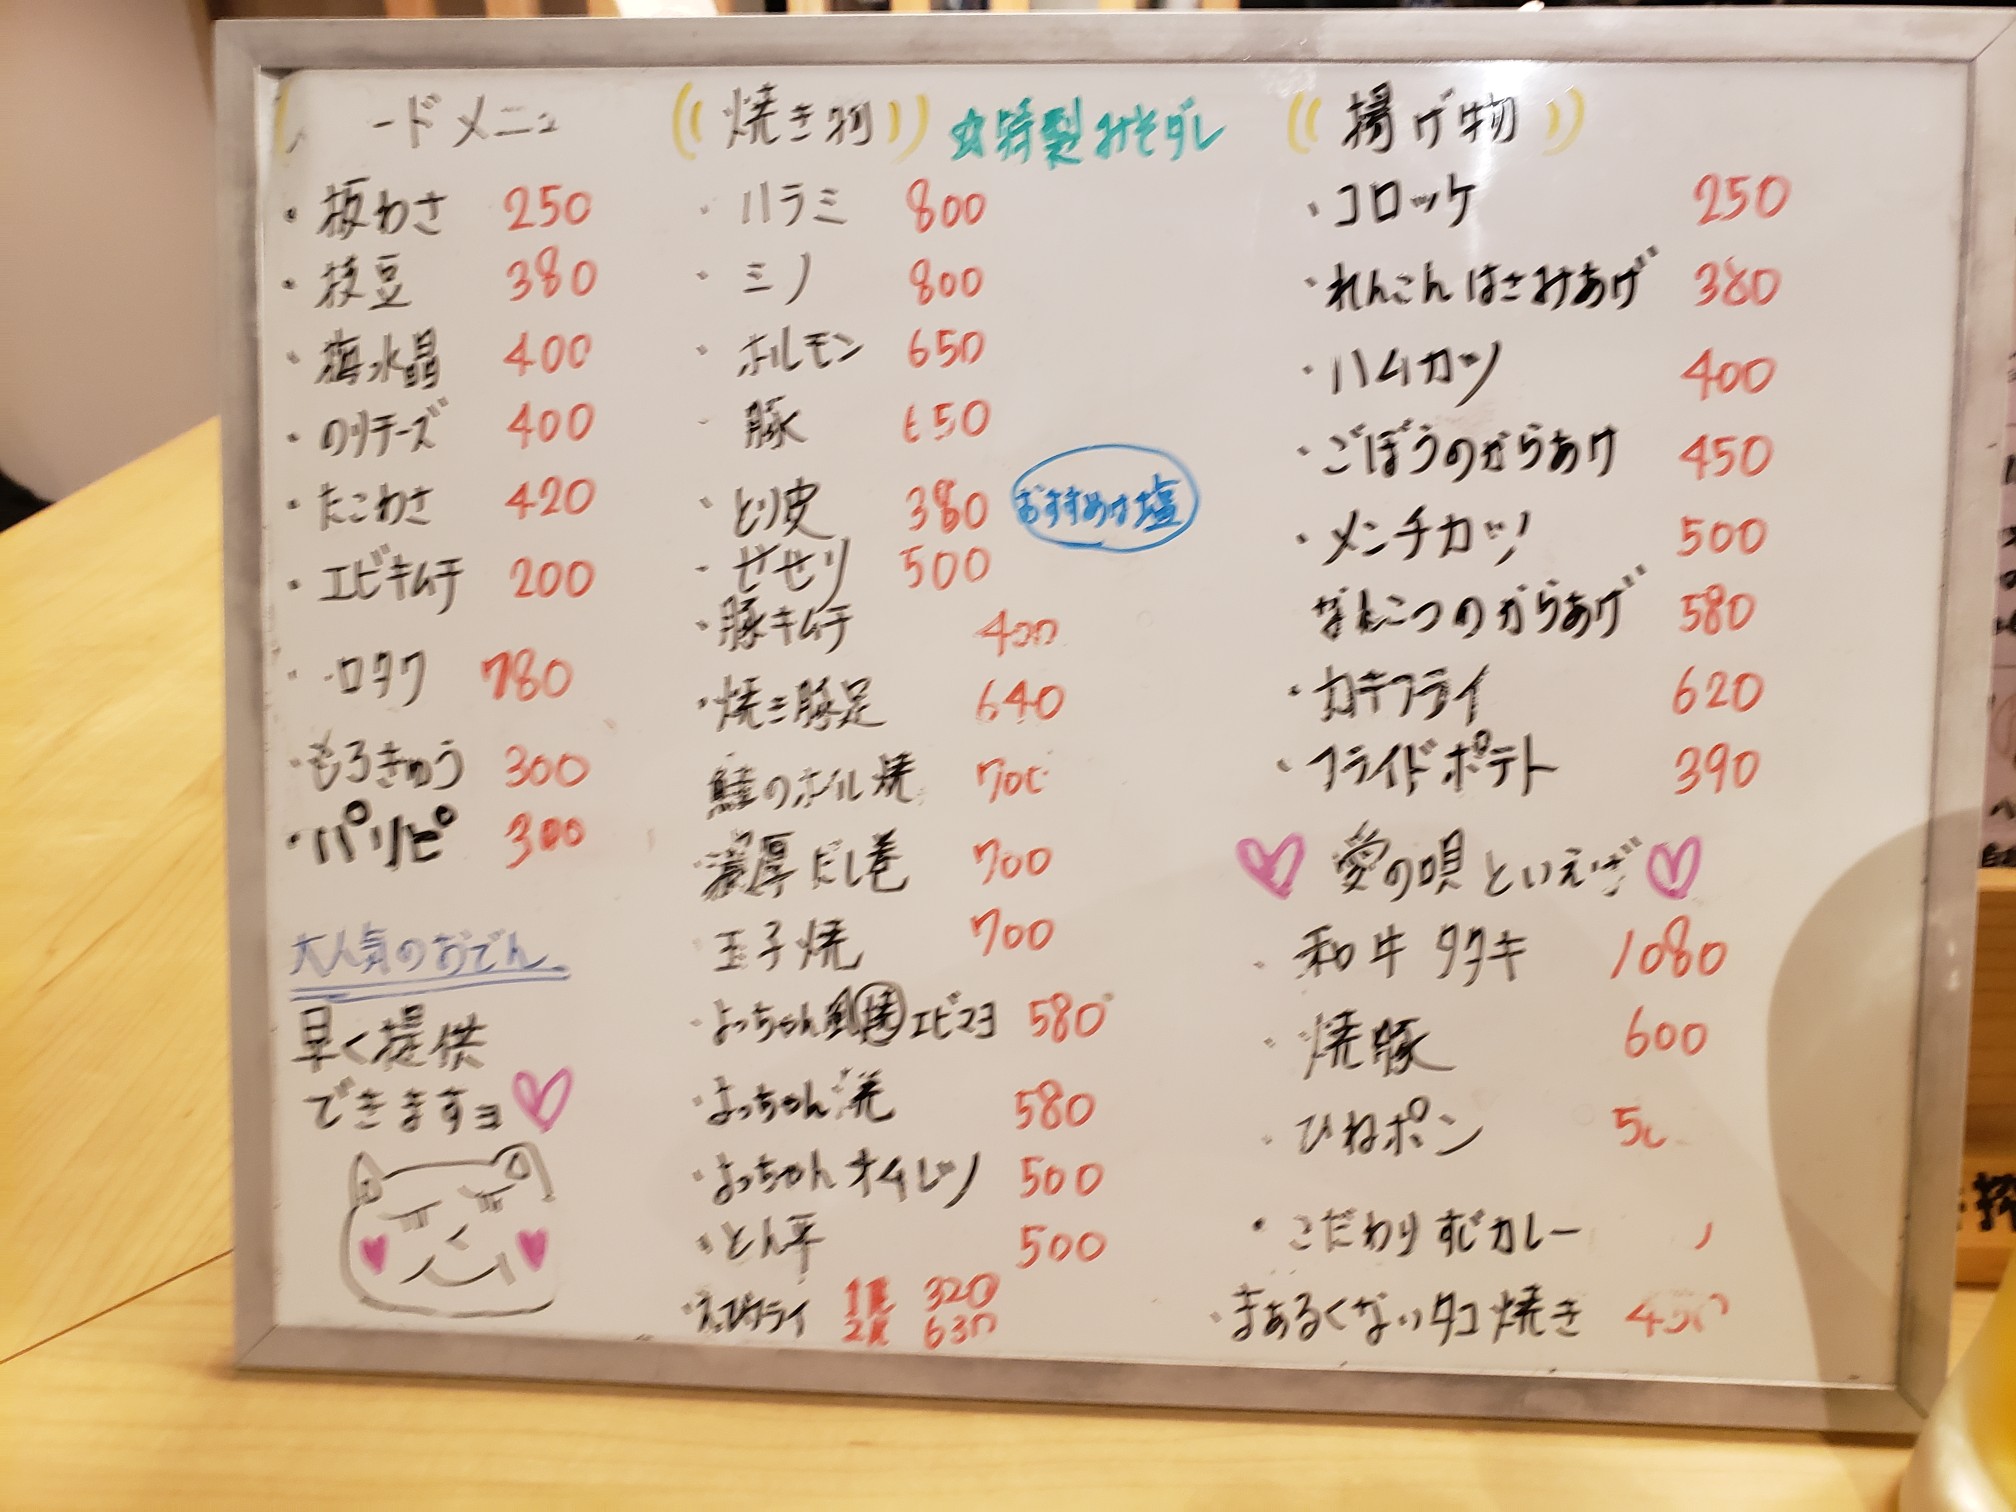 ードメニュ
・板わさ 250
・枝豆 380
・梅水晶 400
・のりチーズ 400
・たこわさ 420
・エビキムチ 200
・ロタク 780
・もろきゅう 300
・パリピ 300
大人気のおでん
早く提供
できますョ♡
((焼き物)) ☆特製みそダレ
・ハラミ 800
・ミノ 800
・ホルモン 650
・豚 650
・とり皮 380 おすすめは塩
・せせり 500
・豚キムチ 400
・焼き豚足 640
鮭のホイル焼 700
・濃厚だし巻 700
・玉子焼 700
・よっちゃん風焼エビマヨ 580
・よっちゃん焼 580
・よっちゃんオムレツ 500
・とん平 500
・えびフライ 1尾 320
2尾 630
((揚げ物))
・コロッケ 250
・れんこんはさみあげ 380
・ハムカツ 400
・ごぼうのからあげ 450
・メンチカツ 500
なんこつのからあげ 580
・カキフライ 620
・フライドポテト 390
♡愛の唄といえば♡
・和牛タタキ 1080
・焼豚 600
・ひねポン 50
・こだわりすじカレー
・まあるくないタコ焼き 450